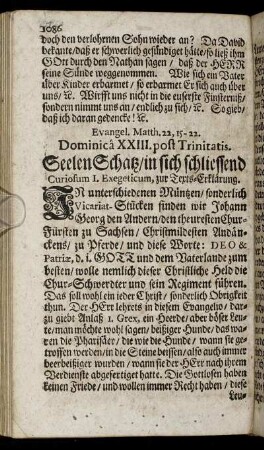 1086
doch den verlohrnen Sohn wieder an? Da David
bekante/ daß er schwerlich gesündiget hätte/ so ließ ihm
GOtt durch den Nathan sagen / daß der HERR
seine Sünde weggenommen. Wie sich ein Vater
über Kinder erbarmet / so erbarmet Er sich auch über
uns/ &c. Wirfft uns nicht in die euserste Finsterniß/
sondern nimmt uns an/ endlich zu sich/ &c. So gieb/
daß ich daran gedencke! &c.
Evangel. Matth. 22, 15-22.
Dominicâ XXIII. post Trinitatis.
Seelen Schatz/ in sich schliessend
Curiosum I. Exegeticum, zur Texts-Erklärung.
IN unterschiedenen Müntzen/ sonderlich
Vicariat-Stücken finden wir Johann
Georg den Andern/ den theuresten Chur-
Fürsten zu Sachsen/ Christmildesten Andän-
ckens/ zu Pferde/ und diese Worte: DEO &
Patriæ, d. i. GOTT und dem Vaterlande zum
besten/ wolle nemlich dieser Christliche Held die
Chur-Schwerdter und sein Regiment führen.
Das soll wohl ein ieder Christ/ sonderlich Obrigkeit
thun. Der HErr lehrets in diesem Evangelio/ dar-
zu giebt Anlaß 1. Grex, ein Heerde/ aber böser Leu-
te/ man möchte wohl sagen/ beißiger Hunde/ das wa-
ren die Pharisäer/ die wie die Hunde / wann sie ge-
troffen werden/ in die Steine beissen/ also auch immer
beerbeißiger wurden / wann sie der HErr nach ihrem
Verdienste abgefertiget hatte. Die Gottlosen haben
keinen Friede/ und wollen immer Recht haben / diese
Leu-